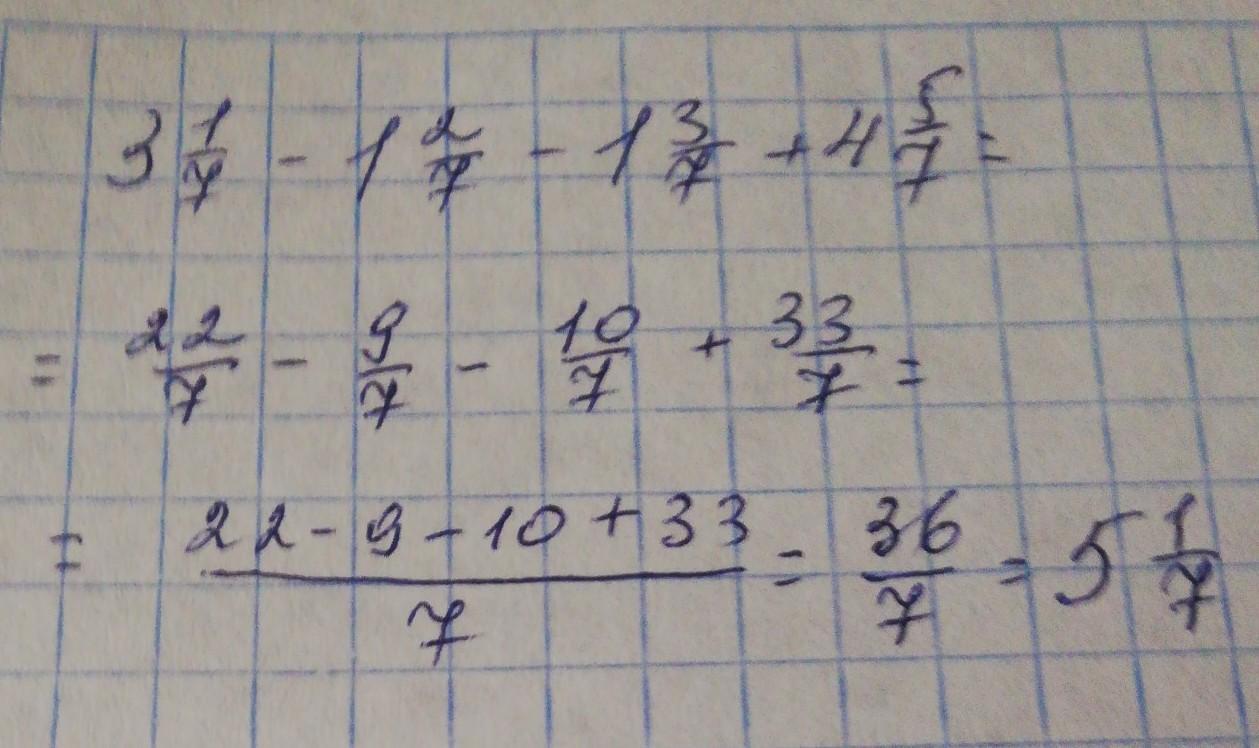 3 1/7 - 1 2/7 - 1 3/7 + 4 5/7 =
= 22/7 - 9/7 - 10/7 + 33/7 =
= (22 - 9 - 10 + 33)/7 = 36/7 = 5 1/7